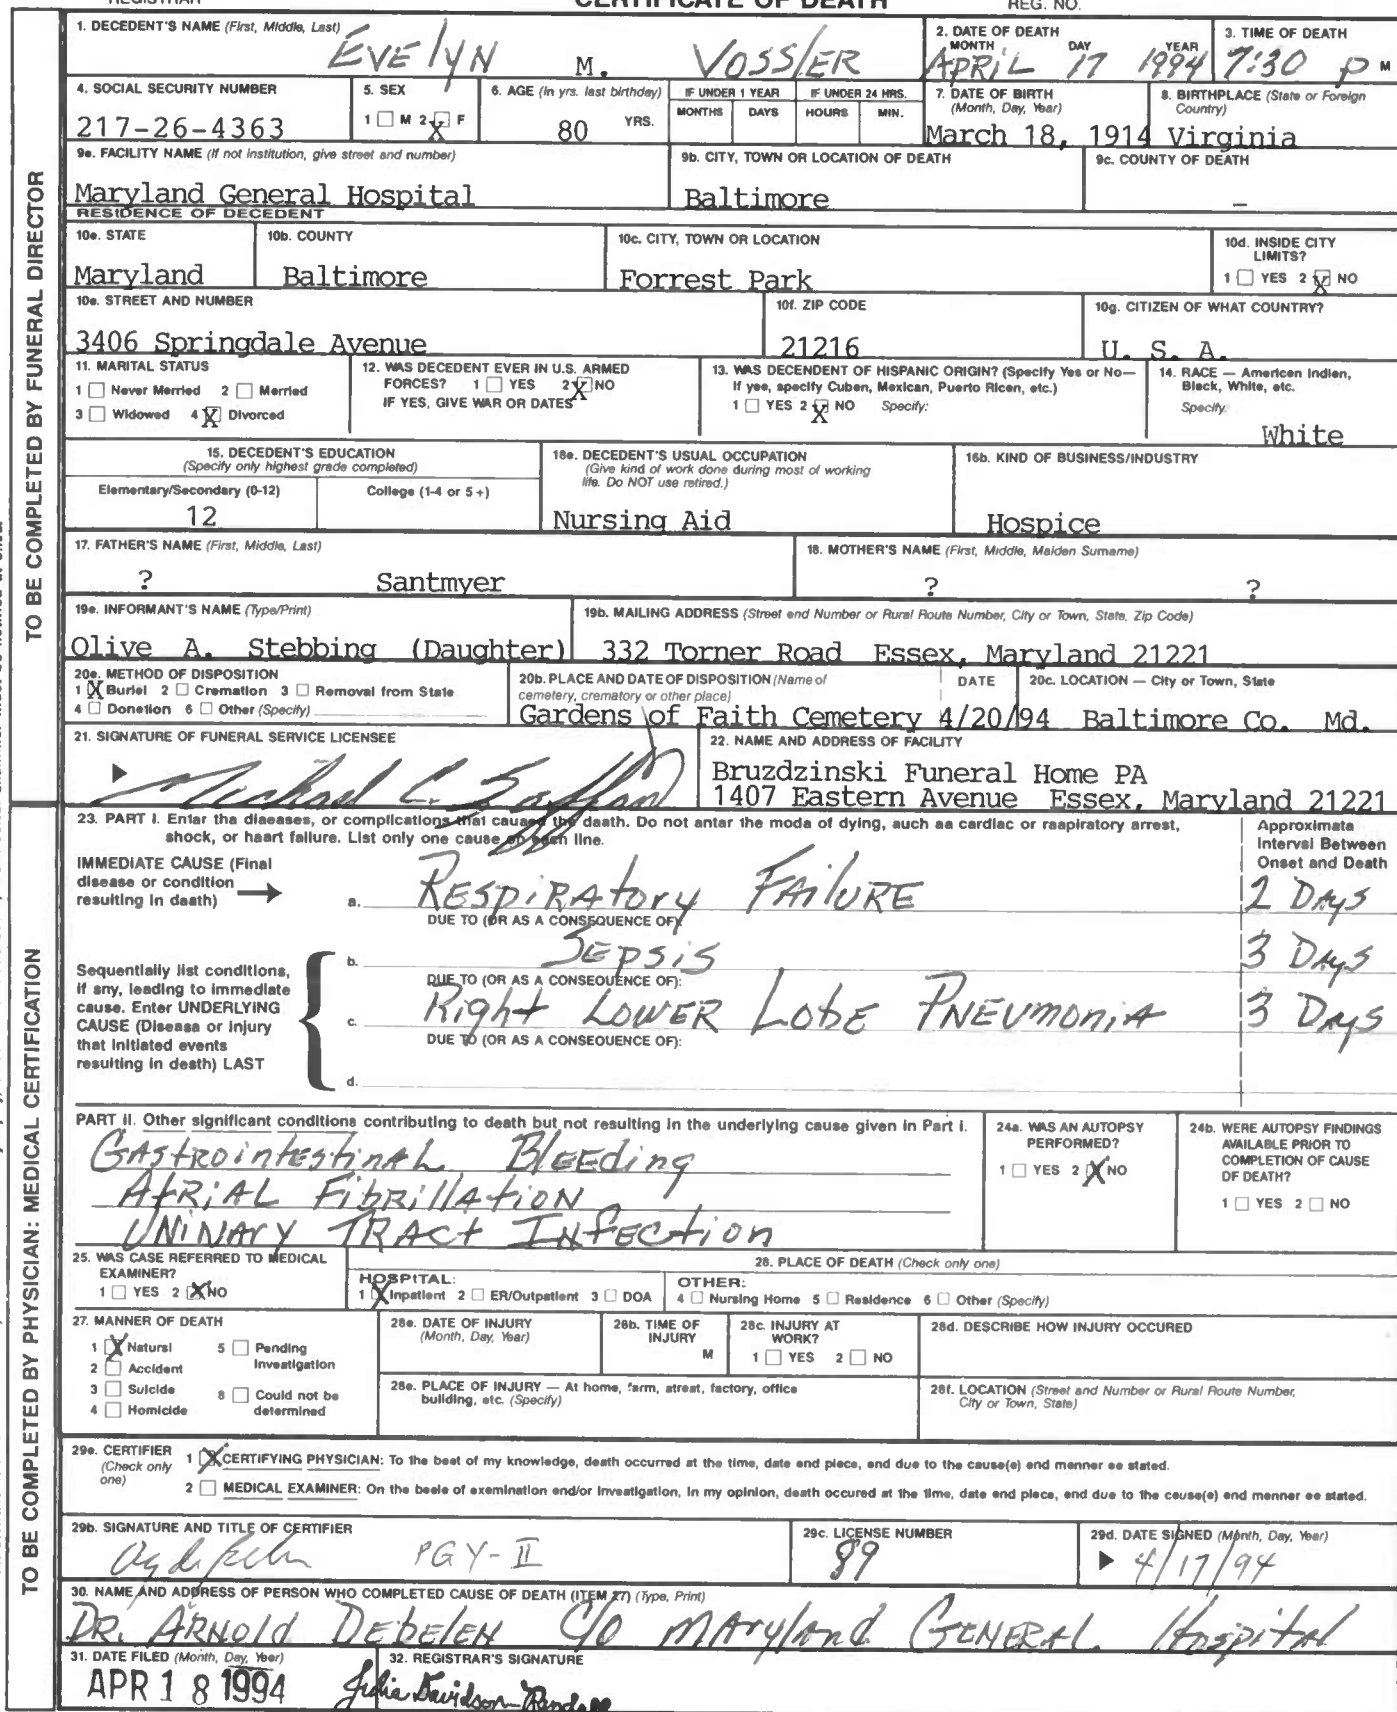 REGISTRAR CERTIFICATE OF DEATH REG. NO.
1. DECEDENT'S NAME (First, Middle, Last)
EVElyN M. VOSSlER
2. DATE OF DEATH
MONTH DAY YEAR
APRiL 17 1994
3. TIME OF DEATH
7:30 P M
4. SOCIAL SECURITY NUMBER
217-26-4363
5. SEX
1 ☐ M 2 ☒ F
6. AGE (in yrs. last birthday)
80 YRS.
IF UNDER 1 YEAR
MONTHS DAYS
IF UNDER 24 HRS.
HOURS MIN.
7. DATE OF BIRTH
(Month, Day, Year)
March 18, 1914
8. BIRTHPLACE (State or Foreign
Country)
Virginia
9a. FACILITY NAME (If not institution, give street and number)
Maryland General Hospital
9b. CITY, TOWN OR LOCATION OF DEATH
Baltimore
9c. COUNTY OF DEATH
–
RESIDENCE OF DECEDENT
10a. STATE
Maryland
10b. COUNTY
Baltimore
10c. CITY, TOWN OR LOCATION
Forrest Park
10d. INSIDE CITY
LIMITS?
1 ☐ YES 2 ☒ NO
10e. STREET AND NUMBER
3406 Springdale Avenue
10f. ZIP CODE
21216
10g. CITIZEN OF WHAT COUNTRY?
U. S. A.
11. MARITAL STATUS
1 ☐ Never Married 2 ☐ Married
3 ☐ Widowed 4 ☒ Divorced
12. WAS DECEDENT EVER IN U.S. ARMED
FORCES? 1 ☐ YES 2 ☒ NO
IF YES, GIVE WAR OR DATES
13. WAS DECENDENT OF HISPANIC ORIGIN? (Specify Yes or No—
If yes, specify Cuban, Mexican, Puerto Rican, etc.)
1 ☐ YES 2 ☒ NO Specify:
14. RACE — American Indian,
Black, White, etc.
Specify:
White
15. DECEDENT'S EDUCATION
(Specify only highest grade completed)
Elementary/Secondary (0-12) College (1-4 or 5+)
12
16a. DECEDENT'S USUAL OCCUPATION
(Give kind of work done during most of working
life. Do NOT use retired.)
Nursing Aid
16b. KIND OF BUSINESS/INDUSTRY
Hospice
17. FATHER'S NAME (First, Middle, Last)
? Santmyer
18. MOTHER'S NAME (First, Middle, Maiden Surname)
? ?
19a. INFORMANT'S NAME (Type/Print)
Olive A. Stebbing (Daughter)
19b. MAILING ADDRESS (Street and Number or Rural Route Number, City or Town, State, Zip Code)
332 Torner Road Essex, Maryland 21221
20a. METHOD OF DISPOSITION
1 ☒ Burial 2 ☐ Cremation 3 ☐ Removal from State
4 ☐ Donation 6 ☐ Other (Specify)
20b. PLACE AND DATE OF DISPOSITION (Name of
cemetery, crematory or other place)
DATE
Gardens of Faith Cemetery 4/20/94
20c. LOCATION — City or Town, State
Baltimore Co. Md.
21. SIGNATURE OF FUNERAL SERVICE LICENSEE
Michael C.
22. NAME AND ADDRESS OF FACILITY
Bruzdzinski Funeral Home PA
1407 Eastern Avenue Essex, Maryland 21221
TO BE COMPLETED BY FUNERAL DIRECTOR
23. PART I. Enter the diseases, or complications that caused the death. Do not enter the mode of dying, such as cardiac or respiratory arrest,
shock, or heart failure. List only one cause on each line.
Approximate
Interval Between
Onset and Death
IMMEDIATE CAUSE (Final
disease or condition
resulting in death) →
a. RESPiRAtory FAilURE 2 DAys
DUE TO (OR AS A CONSEQUENCE OF):
b. SEPSiS 3 DAys
DUE TO (OR AS A CONSEQUENCE OF):
c. Right LOWER LobE PNEUMONiA 3 DAys
DUE TO (OR AS A CONSEQUENCE OF):
d.
Sequentially list conditions,
if any, leading to immediate
cause. Enter UNDERLYING
CAUSE (Disease or injury
that initiated events
resulting in death) LAST
PART II. Other significant conditions contributing to death but not resulting in the underlying cause given in Part I.
GAStrointestinAL BlEEding
AtRiAL FibRillAtioN
UNiNARY TRACt INfEction
24a. WAS AN AUTOPSY
PERFORMED?
1 ☐ YES 2 ☒ NO
24b. WERE AUTOPSY FINDINGS
AVAILABLE PRIOR TO
COMPLETION OF CAUSE
OF DEATH?
1 ☐ YES 2 ☐ NO
25. WAS CASE REFERRED TO MEDICAL
EXAMINER?
1 ☐ YES 2 ☒ NO
26. PLACE OF DEATH (Check only one)
HOSPITAL:
1 ☒ Inpatient 2 ☐ ER/Outpatient 3 ☐ DOA
OTHER:
4 ☐ Nursing Home 5 ☐ Residence 6 ☐ Other (Specify)
27. MANNER OF DEATH
1 ☒ Natural 5 ☐ Pending
Investigation
2 ☐ Accident
3 ☐ Suicide 8 ☐ Could not be
determined
4 ☐ Homicide
28a. DATE OF INJURY
(Month, Day, Year)
28b. TIME OF
INJURY
M
28c. INJURY AT
WORK?
1 ☐ YES 2 ☐ NO
28d. DESCRIBE HOW INJURY OCCURED
28e. PLACE OF INJURY — At home, farm, street, factory, office
building, etc. (Specify)
28f. LOCATION (Street and Number or Rural Route Number,
City or Town, State)
29a. CERTIFIER
(Check only
one)
1 ☒ CERTIFYING PHYSICIAN: To the best of my knowledge, death occurred at the time, date and place, and due to the cause(s) and manner as stated.
2 ☐ MEDICAL EXAMINER: On the basis of examination and/or investigation, in my opinion, death occured at the time, date and place, and due to the cause(s) and manner as stated.
29b. SIGNATURE AND TITLE OF CERTIFIER
PGY-II
29c. LICENSE NUMBER
89
29d. DATE SIGNED (Month, Day, Year)
4/17/94
30. NAME AND ADDRESS OF PERSON WHO COMPLETED CAUSE OF DEATH (ITEM 27) (Type, Print)
DR. ARNOld DEbElEN C/O MARylANd GENERAL Hospital
31. DATE FILED (Month, Day, Year)
APR 18 1994
32. REGISTRAR'S SIGNATURE
Julia Davidson-Randall
TO BE COMPLETED BY PHYSICIAN: MEDICAL CERTIFICATION